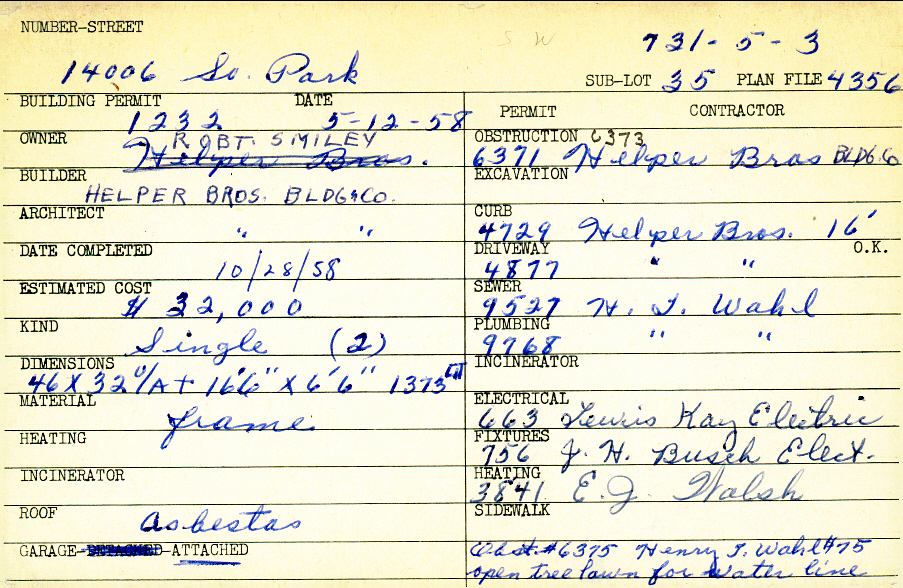 NUMBER-STREET
S W
731-5-3
14006 So. Park
SUB-LOT 35 PLAN FILE 4356
BUILDING PERMIT DATE
1232 5-12-58
PERMIT CONTRACTOR
OWNER ROBT. SMILEY
Helper Bros.
OBSTRUCTION 6373
6371 Helper Bros BLDG. Co
BUILDER
HELPER BROS. BLDG & CO.
EXCAVATION
ARCHITECT
" "
CURB
4729 Helper Bros. 16'
DATE COMPLETED
10/28/58
DRIVEWAY O.K.
4877 " "
ESTIMATED COST
$ 32,000
SEWER
9527 H. J. Wahl
KIND
Single (2)
PLUMBING
9768 " "
DIMENSIONS
46 X 32 O/A + 16'6" X 6'6" 1373
INCINERATOR
MATERIAL
frame
ELECTRICAL
663 Lewis Kay Electric
HEATING
FIXTURES
756 J. H. Busch Elect.
INCINERATOR
HEATING
3841 E. J. Walsh
ROOF
asbestas
SIDEWALK
GARAGE-DETACHED-ATTACHED
Obst. #6375 Henry J. Wahl #75
open tree lawn for water line